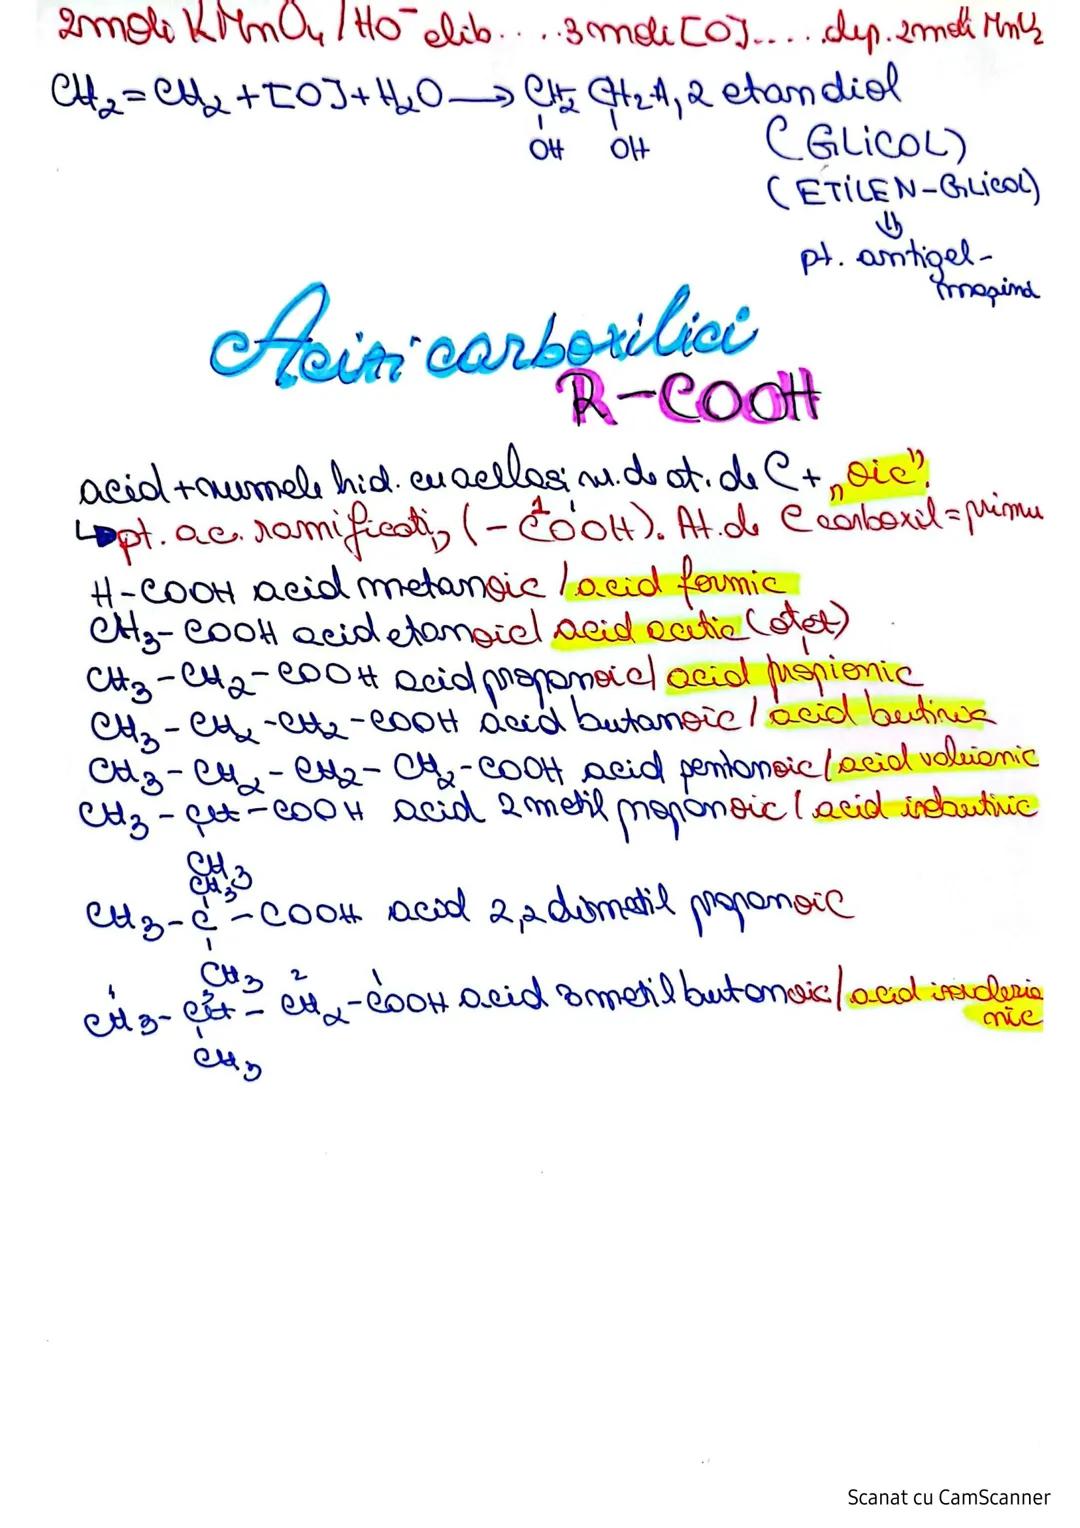 2moli KMnO4 / HO⁻ elib. . . . . 3 moli [O]. . . . . dep. 2moli MnO2
CH2=CH2 + [O] + H2O → CH2 CH2 1,2 etandiol
OH OH (GLiCOL)
(ETiLEN-GLicol)
⇓
pt. antigel-
mașină
Acizi carboxilici
R-COOH
acid + numele hid. cu același nr. de at. de C + „oic"
↳ pt. ac. ramificați, (-COOH). At. de C carboxil = primu
1
H-COOH acid metanoic / acid formic
CH3-COOH acid etanoic / acid acetic (oțet)
CH3-CH2-COOH acid propanoic / acid propionic
CH3-CH2-CH2-COOH acid butanoic / acid butiric
CH3-CH2-CH2-CH2-COOH acid pentanoic / acid valerianic
CH3-CH-COOH acid 2metil propanoic / acid isobutiric
CH3
CH3
CH3-C-COOH acid 2,2 dimetil propanoic
CH3
2 1
CH3-CH-CH2-COOH acid 3metil butanoic / acid isovaleria
nic
CH3
Scanat cu CamScanner